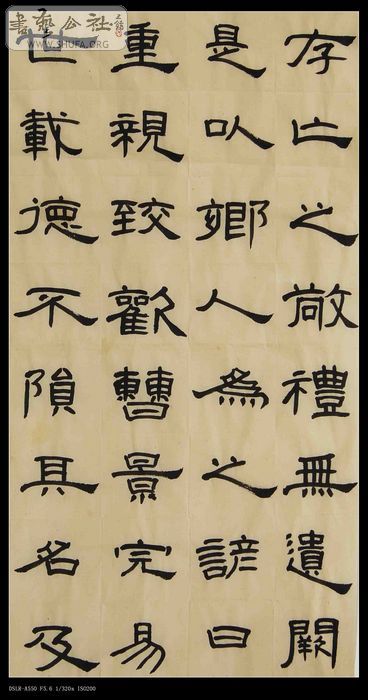 存亡之敬禮無遺闕
是以鄉人為之諺曰
重親致歡曹景完易
世載德不隕其名及
書藝公社
WWW.SHUFA.ORG
DSLR-A550 F5.6 1/320s ISO200